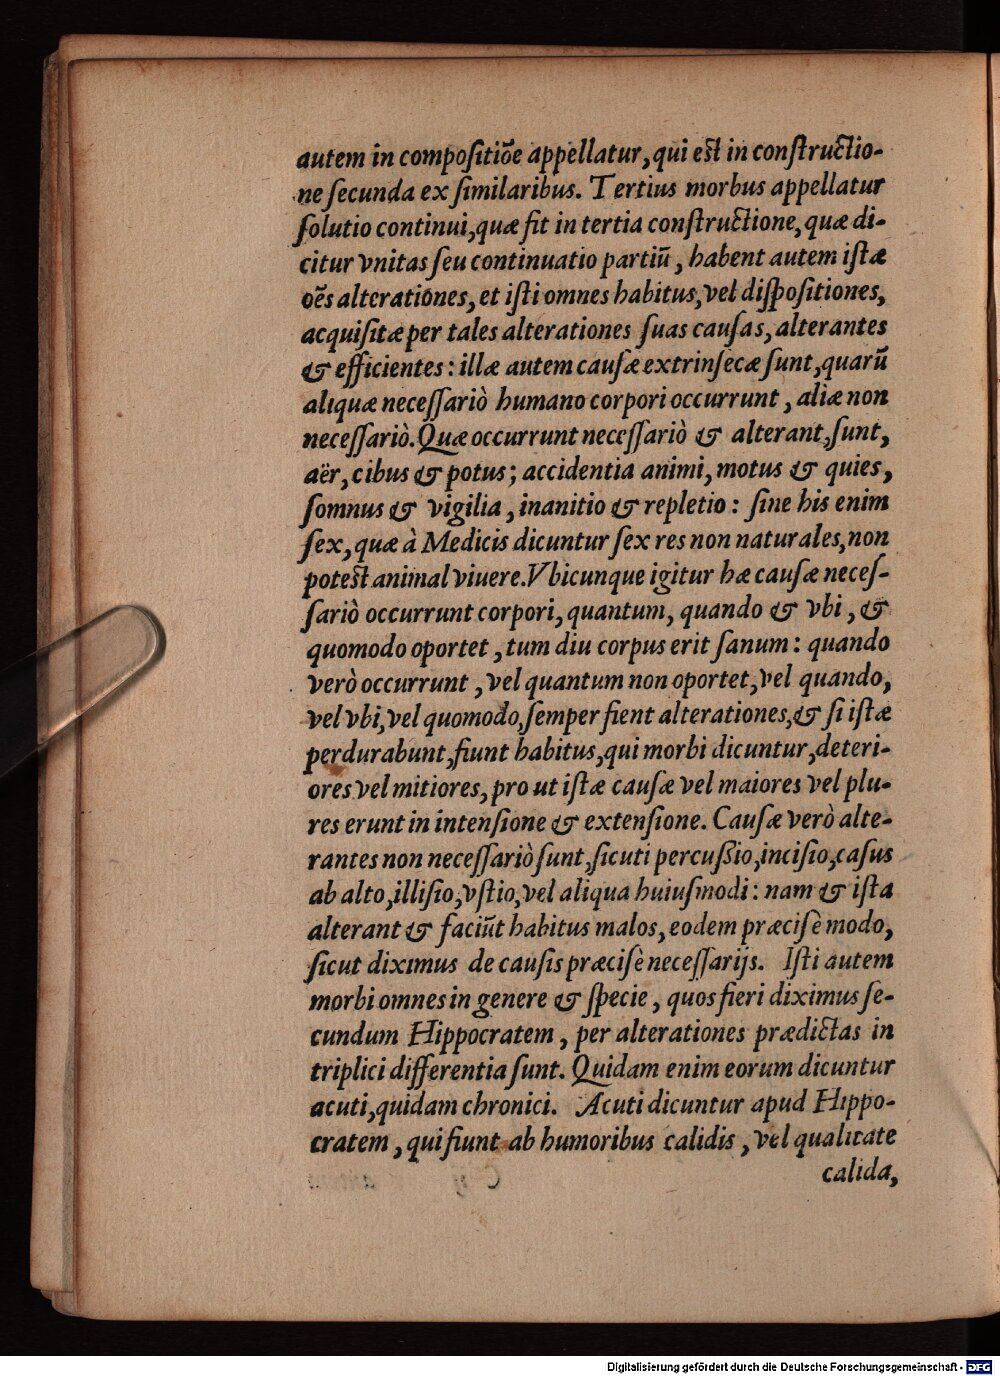 autem in compoſitiõe appellatur, qui est in conſtructio-
ne ſecunda ex ſimilaribus. Tertius morbus appellatur
ſolutio continui, quæ fit in tertia conſtructione, quæ di-
citur vnitas ſeu continuatio partiũ, habent autem iſtæ
oẽs alterationes, et iſti omnes habitus, vel diſpoſitiones,
acquiſitæ per tales alterationes ſuas cauſas, alterantes
& efficientes: illæ autem cauſæ extrinſecæ ſunt, quarũ
aliquæ neceſſariò humano corpori occurrunt, aliæ non
neceſſariò. Quæ occurrunt neceſſariò & alterant, ſunt,
aër, cibus & potus; accidentia animi, motus & quies,
ſomnus & vigilia, inanitio & repletio: ſine his enim
ſex, quæ à Medicis dicuntur ſex res non naturales, non
potest animal viuere. Vbicunque igitur hæ cauſæ neceſ-
ſariò occurrunt corpori, quantum, quando & vbi, &
quomodo oportet, tum diu corpus erit ſanum: quando
verò occurrunt, vel quantum non oportet, vel quando,
vel vbi, vel quomodo, ſemper fient alterationes, & ſi iſtæ
perdurabunt, fiunt habitus, qui morbi dicuntur, deteri-
ores vel mitiores, pro ut iſtæ cauſæ vel maiores vel plu-
res erunt in intenſione & extenſione. Cauſæ verò alte-
rantes non neceſſariò ſunt, ſicuti percußio, inciſio, caſus
ab alto, illiſio, vſtio, vel aliqua huiuſmodi: nam & iſta
alterant & faciũt habitus malos, eodem præciſè modo,
ſicut diximus de cauſis præciſè neceſſarijs. Iſti autem
morbi omnes in genere & ſpecie, quos fieri diximus ſe-
cundum Hippocratem, per alterationes prædictas in
triplici differentia ſunt. Quidam enim eorum dicuntur
acuti, quidam chronici. Acuti dicuntur apud Hippo-
cratem, qui fiunt ab humoribus calidis, vel qualitate
calida,
Digitalisierung gefördert durch die Deutsche Forschungsgemeinschaft - DFG